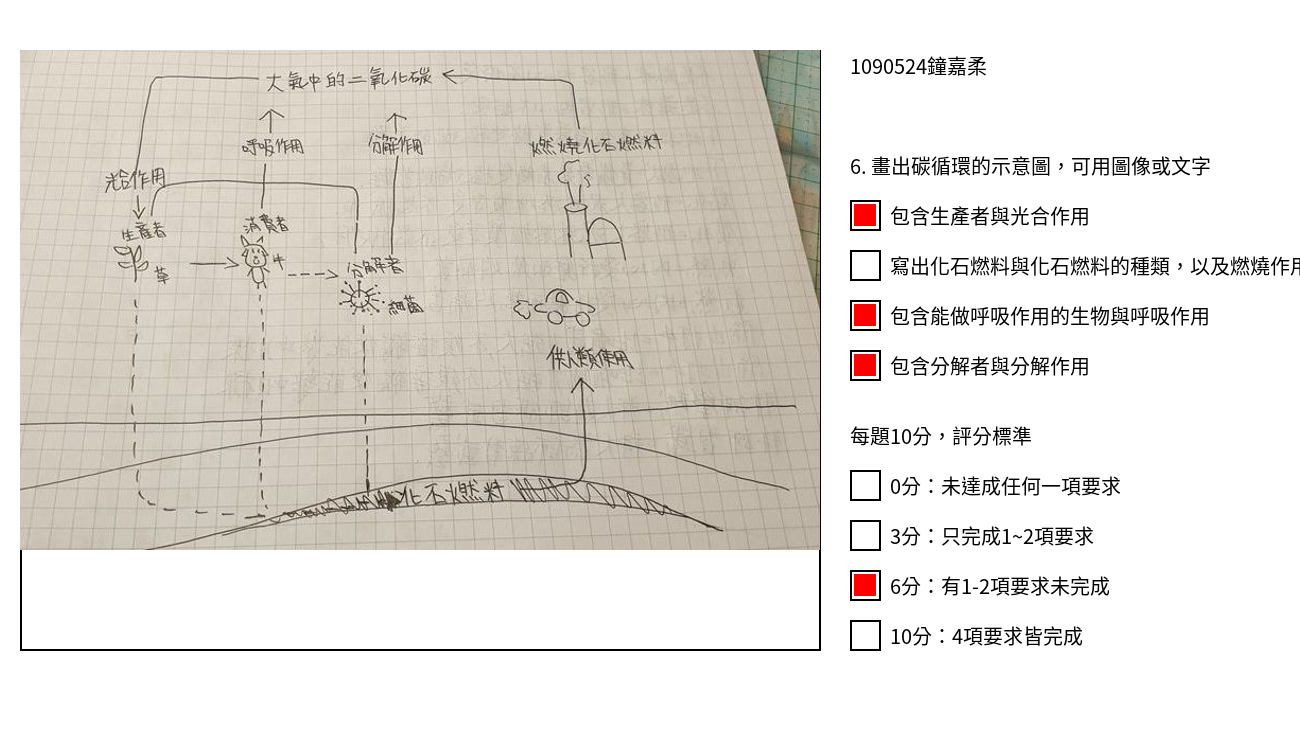 大氣中的二氧化碳
呼吸作用
分解作用
燃燒化石燃料
光合作用
生產者
草
消費者
牛
分解者
細菌
供人類使用
化石燃料
1090524鐘嘉柔
6. 畫出碳循環的示意圖，可用圖像或文字
包含生產者與光合作用
寫出化石燃料與化石燃料的種類，以及燃燒作用
包含能做呼吸作用的生物與呼吸作用
包含分解者與分解作用
每題10分，評分標準
0分：未達成任何一項要求
3分：只完成1~2項要求
6分：有1-2項要求未完成
10分：4項要求皆完成